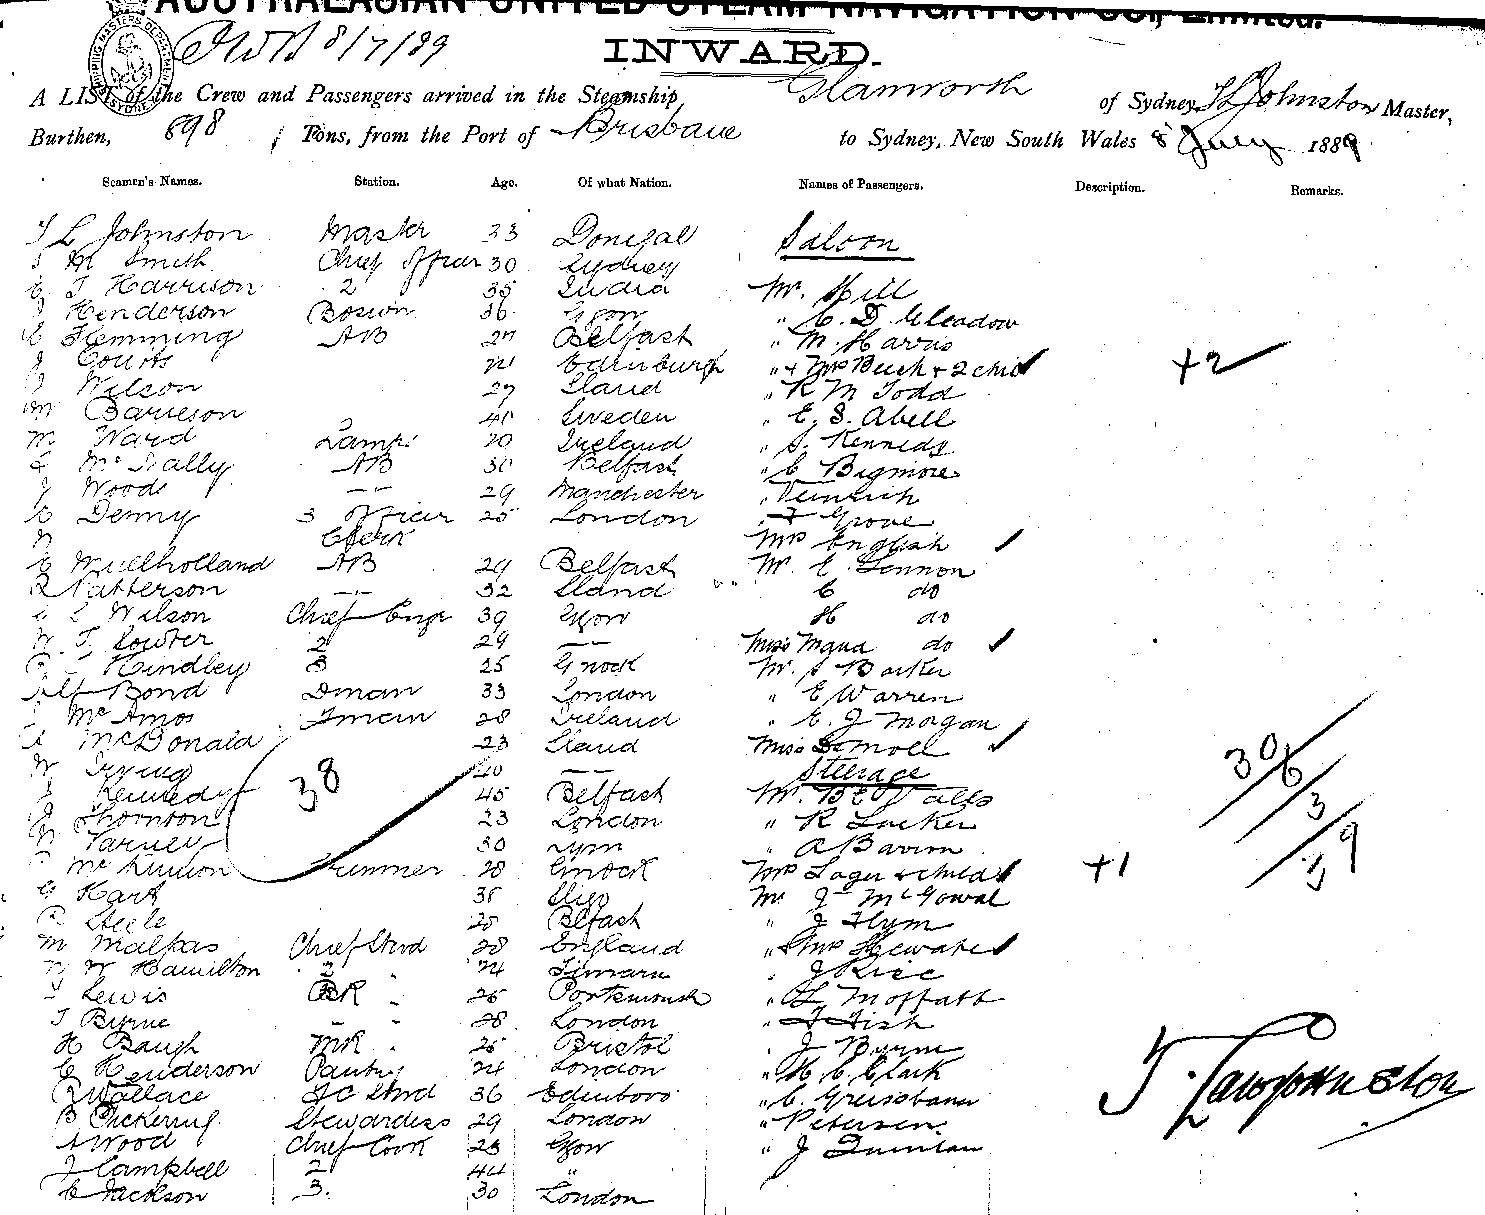 AUSTRALASIAN UNITED STEAM NAVIGATION CO., Limited.
8/7/89
INWARD.
A LIST of the Crew and Passengers arrived in the Steamship Glamworth of Sydney, T L Johnston Master,
Burthen, 898 Tons, from the Port of Brisbane to Sydney, New South Wales 8 July 1889
Seamen's Names. Station. Age. Of what Nation. Names of Passengers. Description. Remarks.
T L Johnston Master 33 Donegal Saloon
M Smith Chief Officer 30 Sydney
T Harrison 2 35 India Mr. Hill
Henderson Boswn 36 Ggow " C. D. Gleadow
Hemming AB 27 Belfast " M. Harris
J Coutts Edinburgh " + Mrs Buch + 2 child +2
Wilson 27 Sland " R M Todd
M 40 Sweden " E. S. Abell
M Ward Lamps 20 Ireland " S. Kennedy
McNally AB 30 Belfast " C Bigmore
J Woods -- 29 Manchester " Heinrich
C Denny 3 Officer 25 London " F Grove
Clerk Mrs English
C Mullholland AB 29 Belfast Mr. E. Lennon
R Patterson -- 32 Sland C do
L Wilson Chief Engr 39 Ggow H do
W. T. Sowter 2 29 -- Miss do
Hindley 3 25 Gnock Mr. S Barker
Alf Bond Dman 33 London " E Warren
McAmos Fman 28 Ireland " E. J Morgan
A McDonald 23 Sland Miss
W Irving 40 -- Steerage 30/6
Kennedy 38 45 Belfast Mr. 3
J Thornton 23 London " R Lucker
W Varney 30 Lym " A Bavin 39
McKinnon Trimmer 28 Gnock Mrs Lager + child +1
G Hart 38 Sligo Mr J McGowal
R Steele 25 Belfast " J Flym
M Malpas Chief Stwd 28 England " + Mrs Stewart
W W Hamilton 2 " 24 Timaru " J Rice
T Lewis BK " 26 Portsmouth " L Moffatt
T Byrne - - 28 London " T Fish
H Baugh MR " 25 Bristol " J Byrne
C Henderson Pantry 24 London " H. C. Clark
R Wallace FC Stwd 36 Edinboro " C.
B Pickering Stewardess 29 London " Petersen T. Law Johnston
A Wood Chief Cook 23 Ggow " J Quinlan
J Campbell 2 44 "
C Jackson 3. 30 London